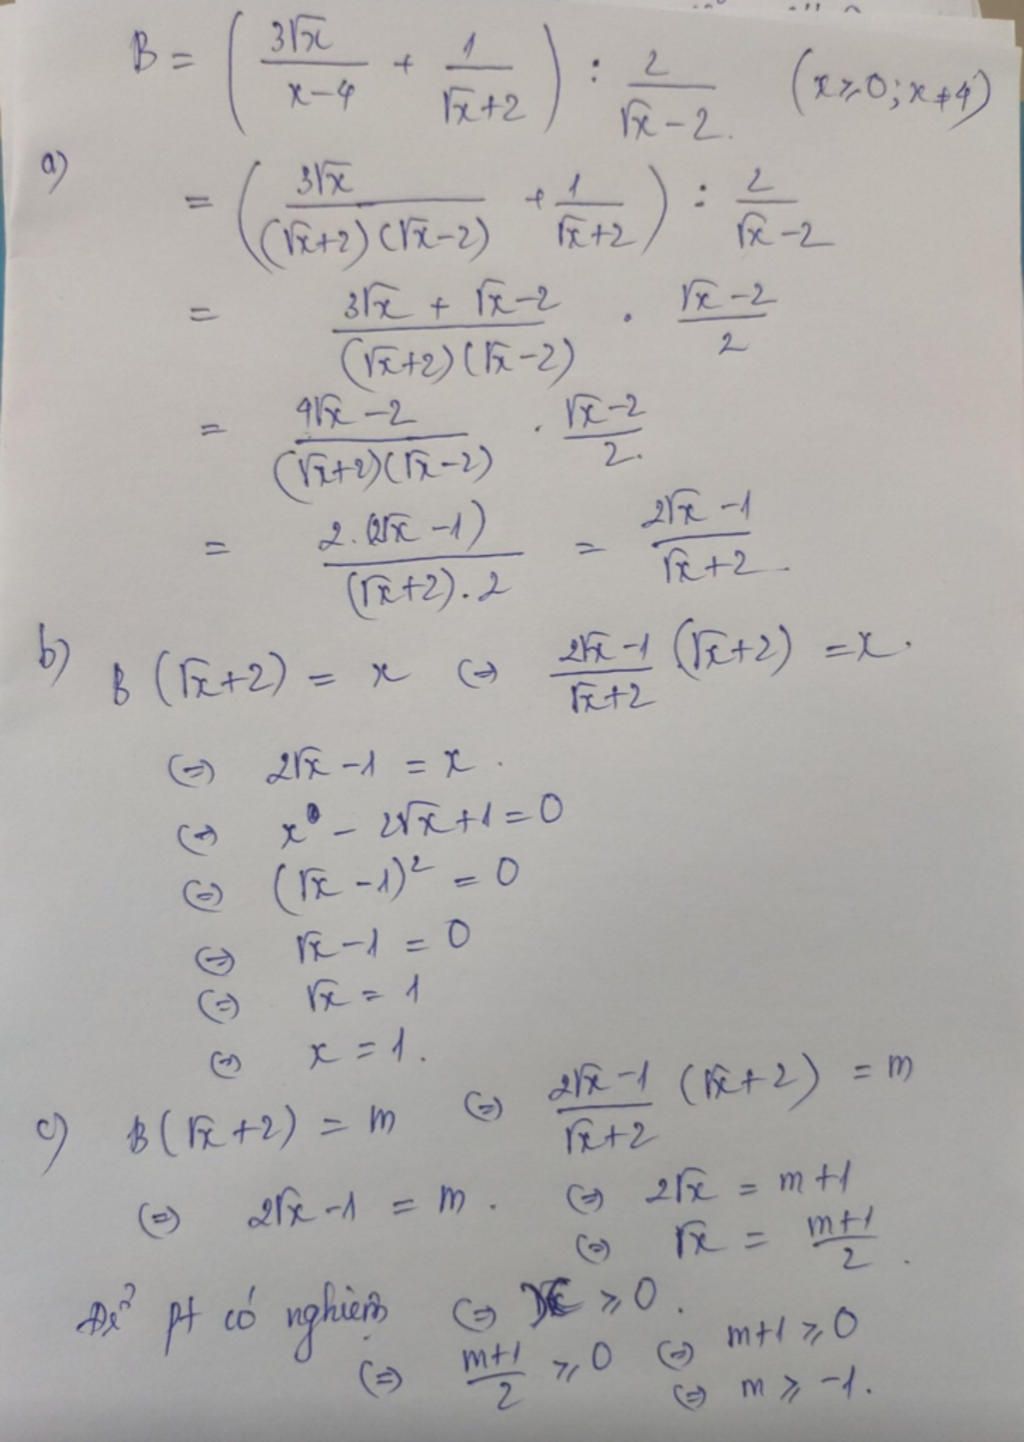 B = ( 3√x / x-4 + 1 / √x+2 ) : 2 / √x-2. (x ≥ 0; x ≠ 4)
a)
= ( 3√x / (√x+2)(√x-2) + 1 / √x+2 ) : 2 / √x-2
= 3√x + √x-2 / (√x+2)(√x-2) . √x-2 / 2
= 4√x-2 / (√x+2)(√x-2) . √x-2 / 2.
= 2.(2√x-1) / (√x+2).2 = 2√x-1 / √x+2.
b) B(√x+2) = x ⇔ 2√x-1 / √x+2 (√x+2) = x.
⇔ 2√x-1 = x.
⇔ x - 2√x+1 = 0
⇔ (√x-1)² = 0
⇔ √x-1 = 0
⇔ √x = 1
⇔ x = 1.
c) B(√x+2) = m ⇔ 2√x-1 / √x+2 (√x+2) = m
⇔ 2√x-1 = m. ⇔ 2√x = m+1
⇔ √x = m+1 / 2.
Để pt có nghiệm ⇔ √x ≥ 0.
⇔ m+1 / 2 ≥ 0 ⇔ m+1 ≥ 0
⇔ m ≥ -1.